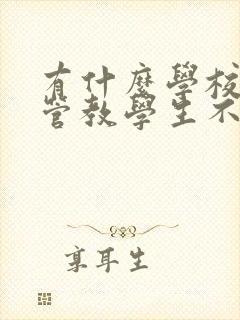 有什麼學校
管教學生不
享耳生